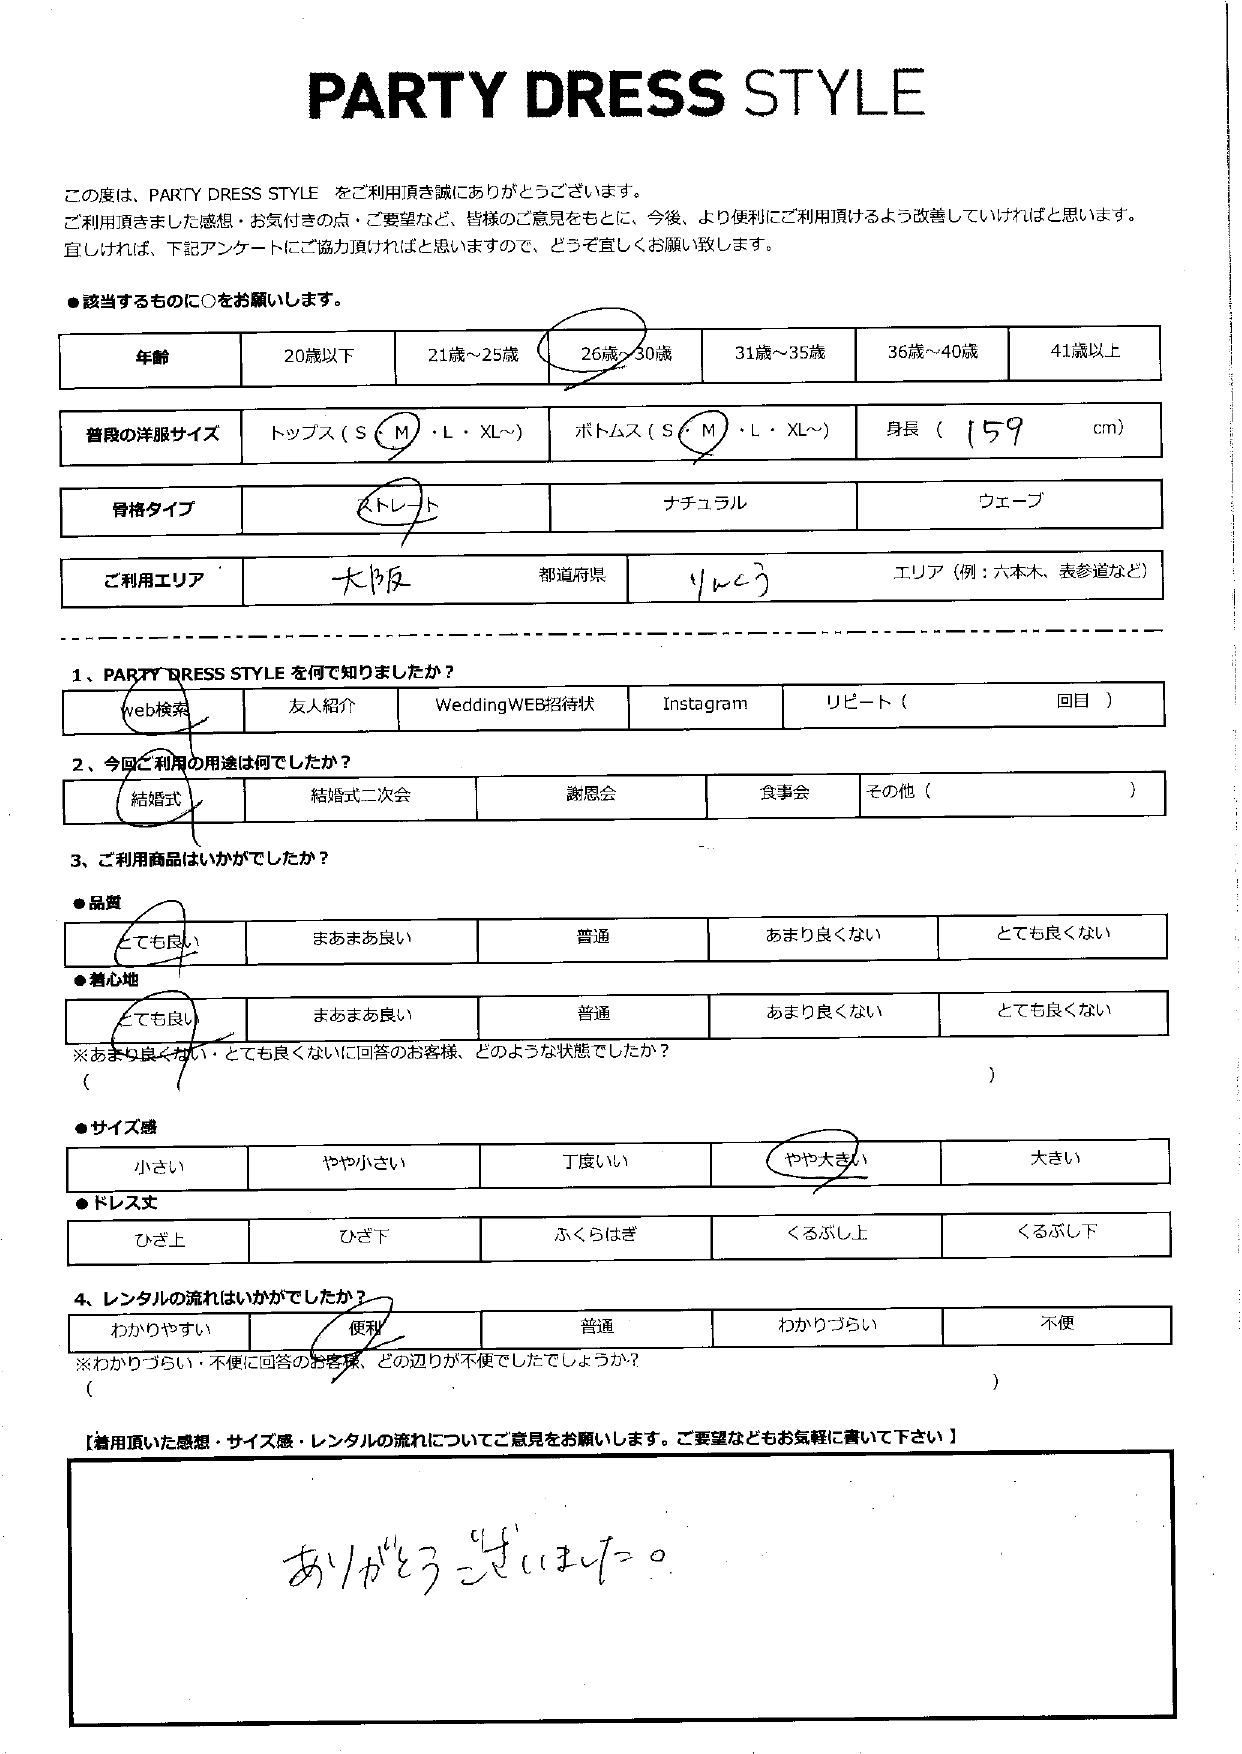 PARTY DRESS STYLE
この度は、PARTY DRESS STYLE をご利用頂き誠にありがとうございます。
ご利用頂きました感想・お気付きの点・ご要望など、皆様のご意見をもとに、今後、より便利にご利用頂けるよう改善していければと思います。
宜しければ、下記アンケートにご協力頂ければと思いますので、どうぞ宜しくお願い致します。
●該当するものに○をお願いします。
年齢 20歳以下 21歳～25歳 26歳～30歳 31歳～35歳 36歳～40歳 41歳以上
普段の洋服サイズ トップス（S・M・L・XL～） ボトムス（S・M・L・XL～） 身長（159 cm）
骨格タイプ ストレート ナチュラル ウェーブ
ご利用エリア 大阪 都道府県 りんくう エリア（例：六本木、表参道など）
1、PARTY DRESS STYLE を何で知りましたか？
web検索 友人紹介 WeddingWEB招待状 Instagram リピート（ 回目 ）
2、今回ご利用の用途は何でしたか？
結婚式 結婚式二次会 謝恩会 食事会 その他（ ）
3、ご利用商品はいかがでしたか？
●品質
とても良い まあまあ良い 普通 あまり良くない とても良くない
●着心地
とても良い まあまあ良い 普通 あまり良くない とても良くない
※あまり良くない・とても良くないに回答のお客様、どのような状態でしたか？
（ ）
●サイズ感
小さい やや小さい 丁度いい やや大きい 大きい
●ドレス丈
ひざ上 ひざ下 ふくらはぎ くるぶし上 くるぶし下
4、レンタルの流れはいかがでしたか？
わかりやすい 便利 普通 わかりづらい 不便
※わかりづらい・不便に回答のお客様、どの辺りが不便でしたでしょうか？
（ ）
【着用頂いた感想・サイズ感・レンタルの流れについてご意見をお願いします。ご要望などもお気軽に書いて下さい】
ありがとうございました。